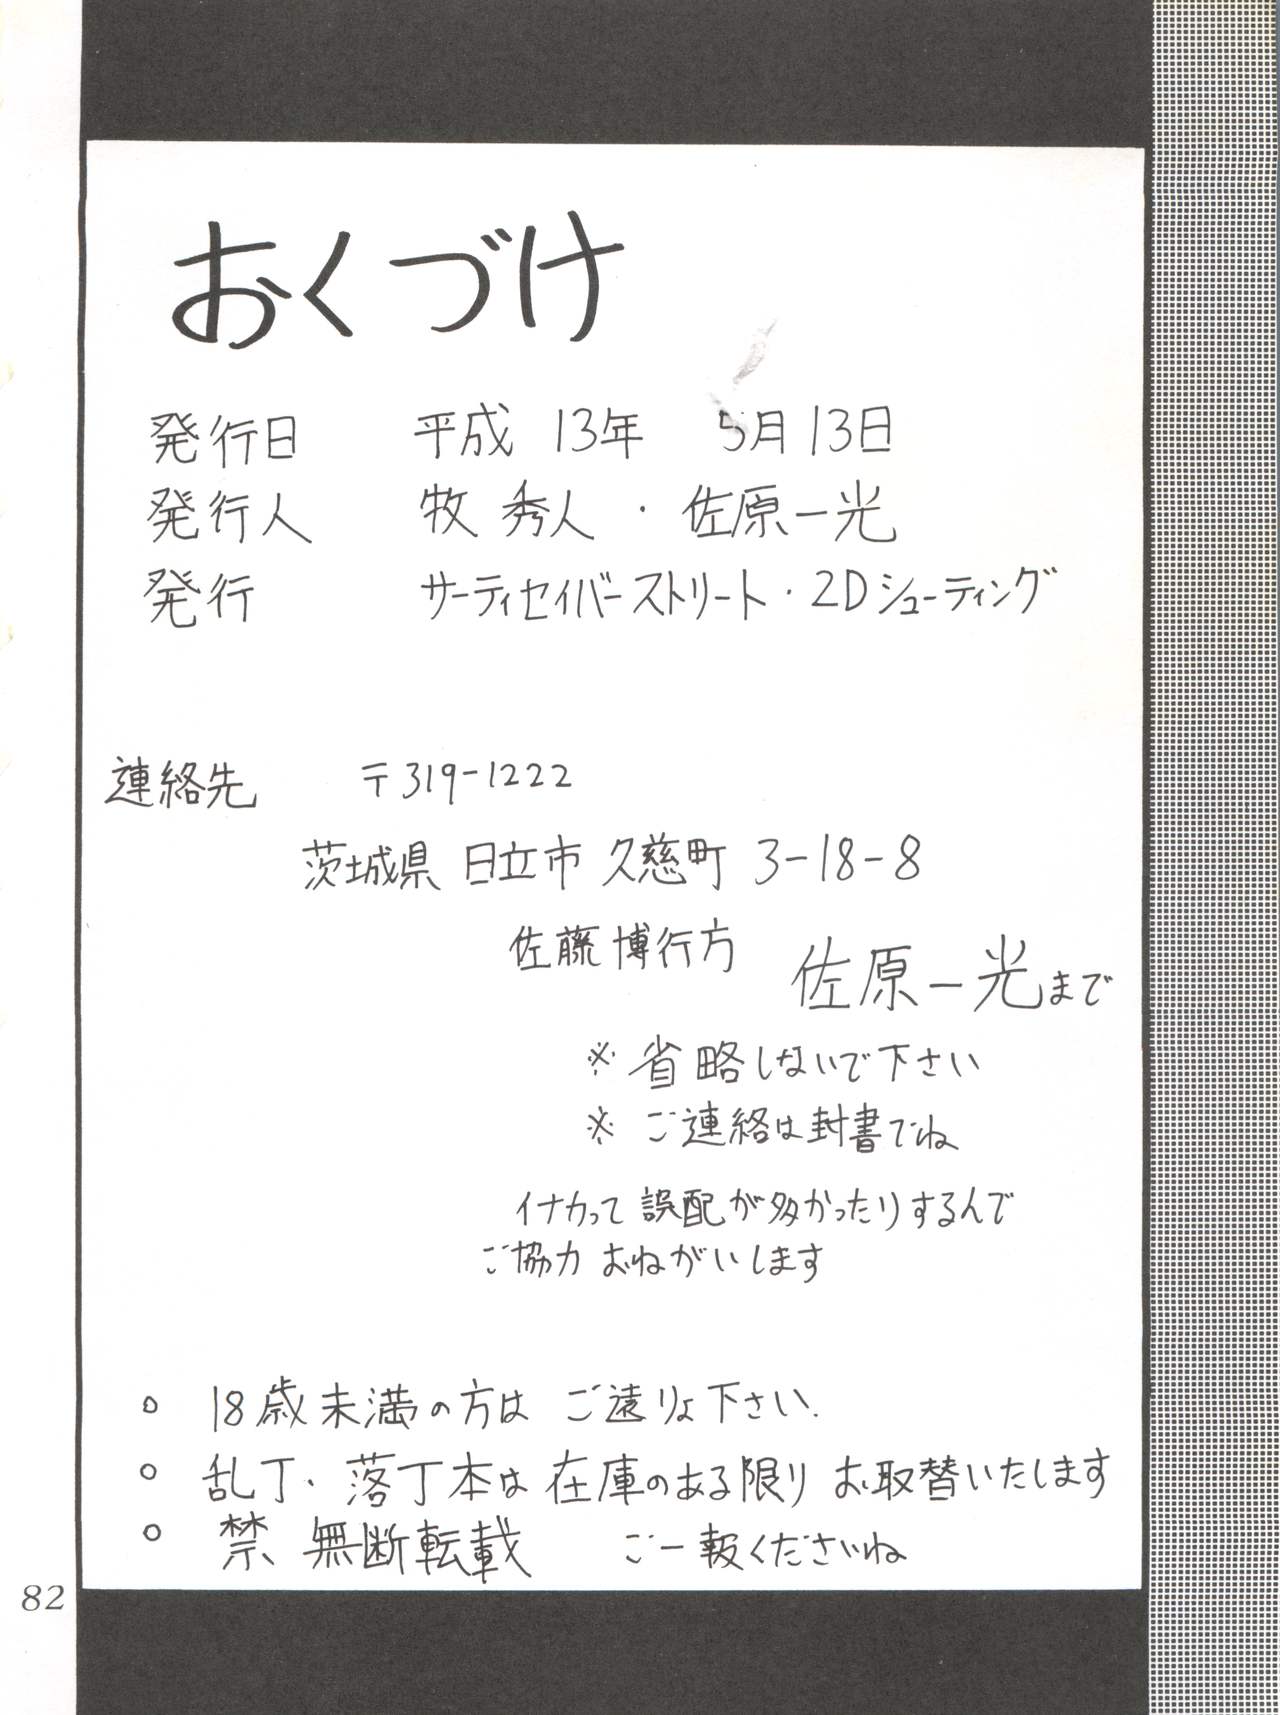 おくづけ
発行日 平成 13年 5月13日
発行人 牧 秀人・佐原一光
発行 サーティセイバーストリート・2Dシューティング
連絡先 〒319-1222
茨城県 日立市 久慈町 3-18-8
佐藤博行方 佐原一光まで
※ 省略しないで下さい
※ ご連絡は封書でね
イナカって誤配が多かったりするんで
ご協力おねがいします
○ 18歳未満の方は ご遠りょ下さい.
○ 乱丁・落丁本は在庫のある限り お取替いたします
○ 禁 無断転載 ご一報くださいね
82